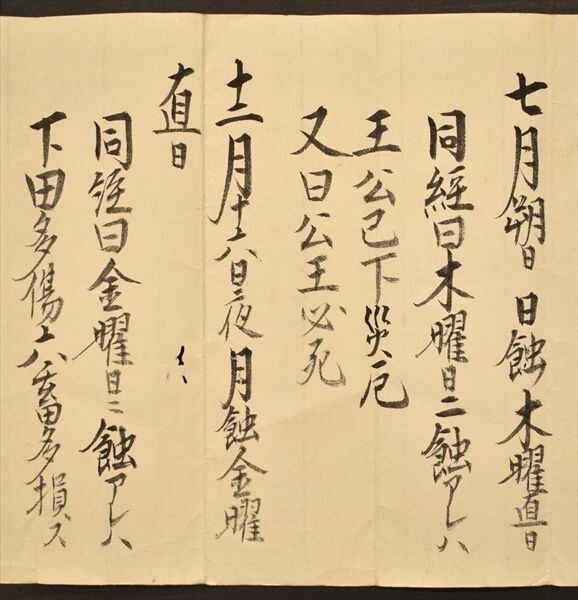 七月朔日 日蝕木曜直日
同經曰木曜日ニ蝕アレハ
王公已下災厄
又曰公王必死
十二月十六日夜月蝕金曜
直日
同經曰金曜日ニ蝕アレハ
下田多傷六畜多損ス